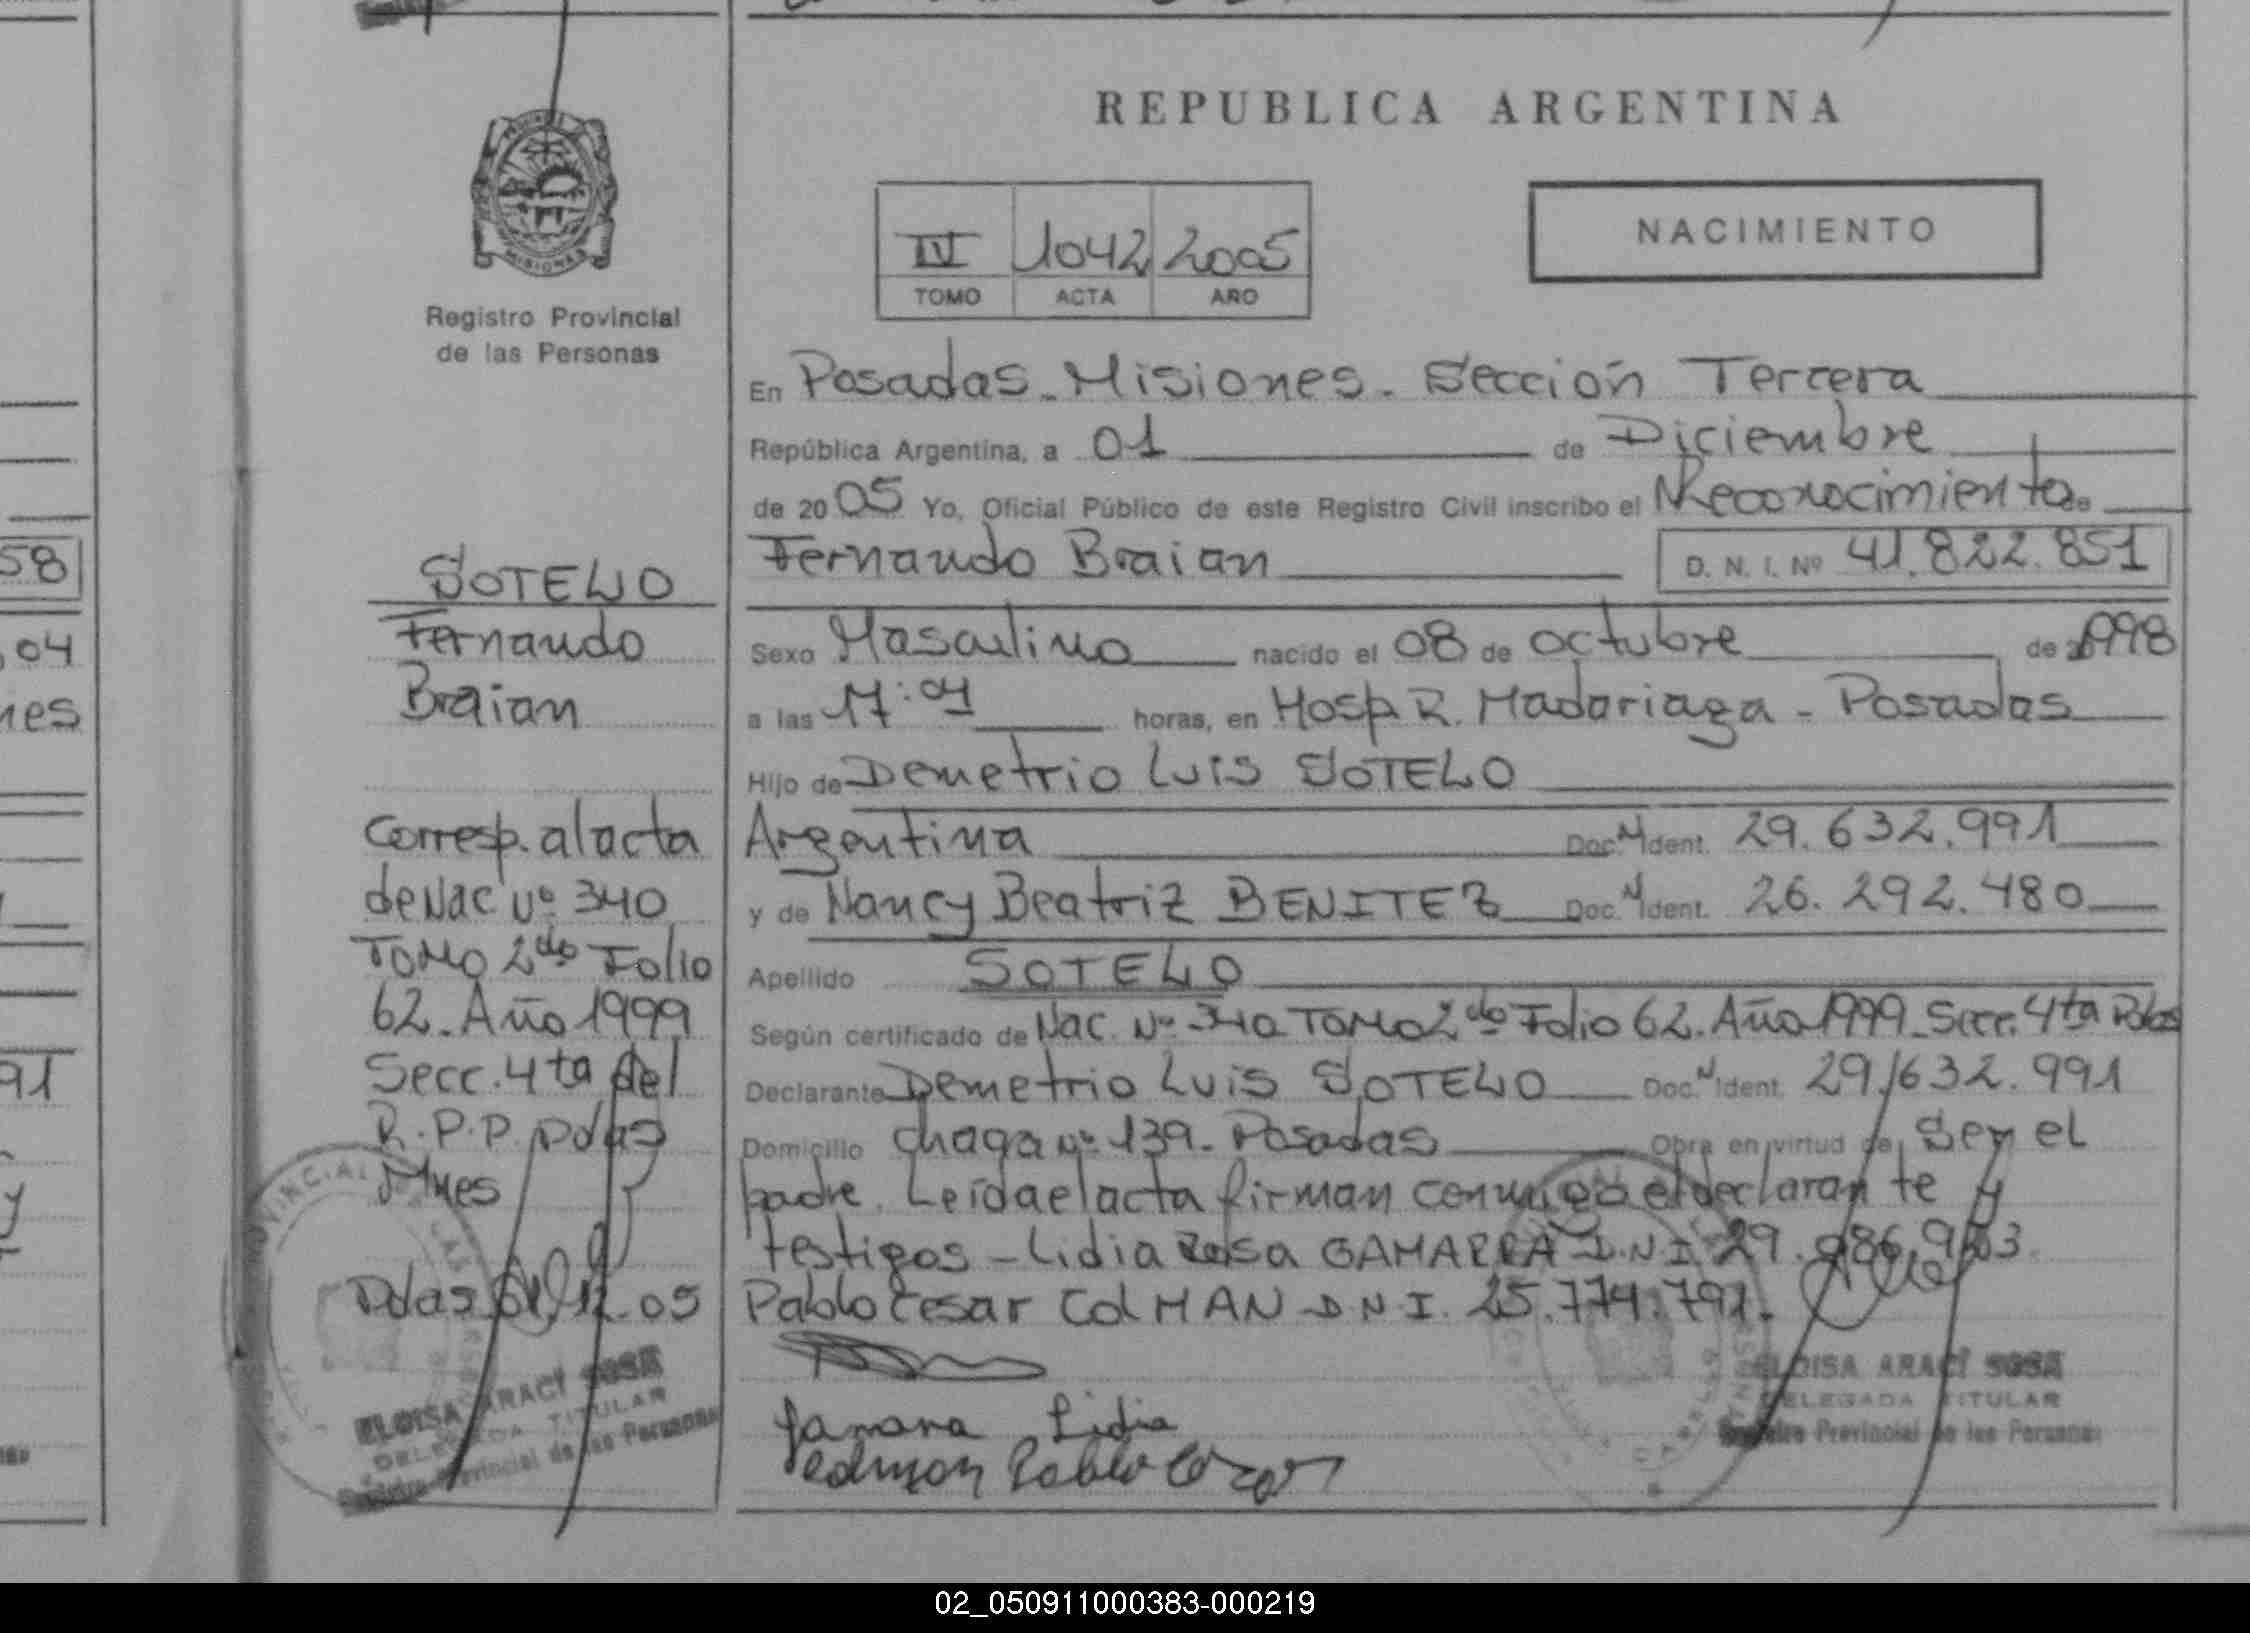 REPUBLICA ARGENTINA
MISIONES
Registro Provincial
de las Personas
IV 1042 2005
TOMO ACTA AÑO
NACIMIENTO
En Posadas - Misiones - Sección Tercera
República Argentina, a 01 de Diciembre
de 2005 Yo, Oficial Público de este Registro Civil inscribo el Reconocimiento de
Fernando Braian D. N. I. Nº 41.822.851
Sexo Masculino nacido el 08 de octubre de 1998
a las 17:04 horas, en Hosp R. Madariaga - Posadas
Hijo de Demetrio Luis SOTELO
Argentina Doc. N Ident. 29.632.991
y de Nancy Beatriz BENITEZ Doc. N Ident. 26.292.480
Apellido SOTELO
Según certificado de Nac. Nº 340 TOMO 2do Folio 62. Año 1999 - Secc. 4ta Pdas
Declarante Demetrio Luis SOTELO Doc. N Ident. 29.632.991
Domicilio Chaga Nº 139 - Posadas Obra en virtud de Ser el
padre. Leída el acta firman conmigo el declarante y
testigos - Lidia Rosa GAMARRA D.N.I. 29.
Pablo Cesar ColMAN D.N.I. 25.774.791.
Lidia
Pablo
ELOISA ARACÍ SOSA
DELEGADA TITULAR
Registro Provincial de las Personas
SOTELO
Fernando
Braian
Corresp. al acta
de Nac Nº 340
TOMO 2do Folio
62. Año 1999
Secc. 4ta del
R.P.P. Pdas
Mnes
Pdas 01.12.05
ELOISA ARACÍ SOSA
DELEGADA TITULAR
Registro Provincial de las Personas
58
04
nes
91
y
02_050911000383-000219